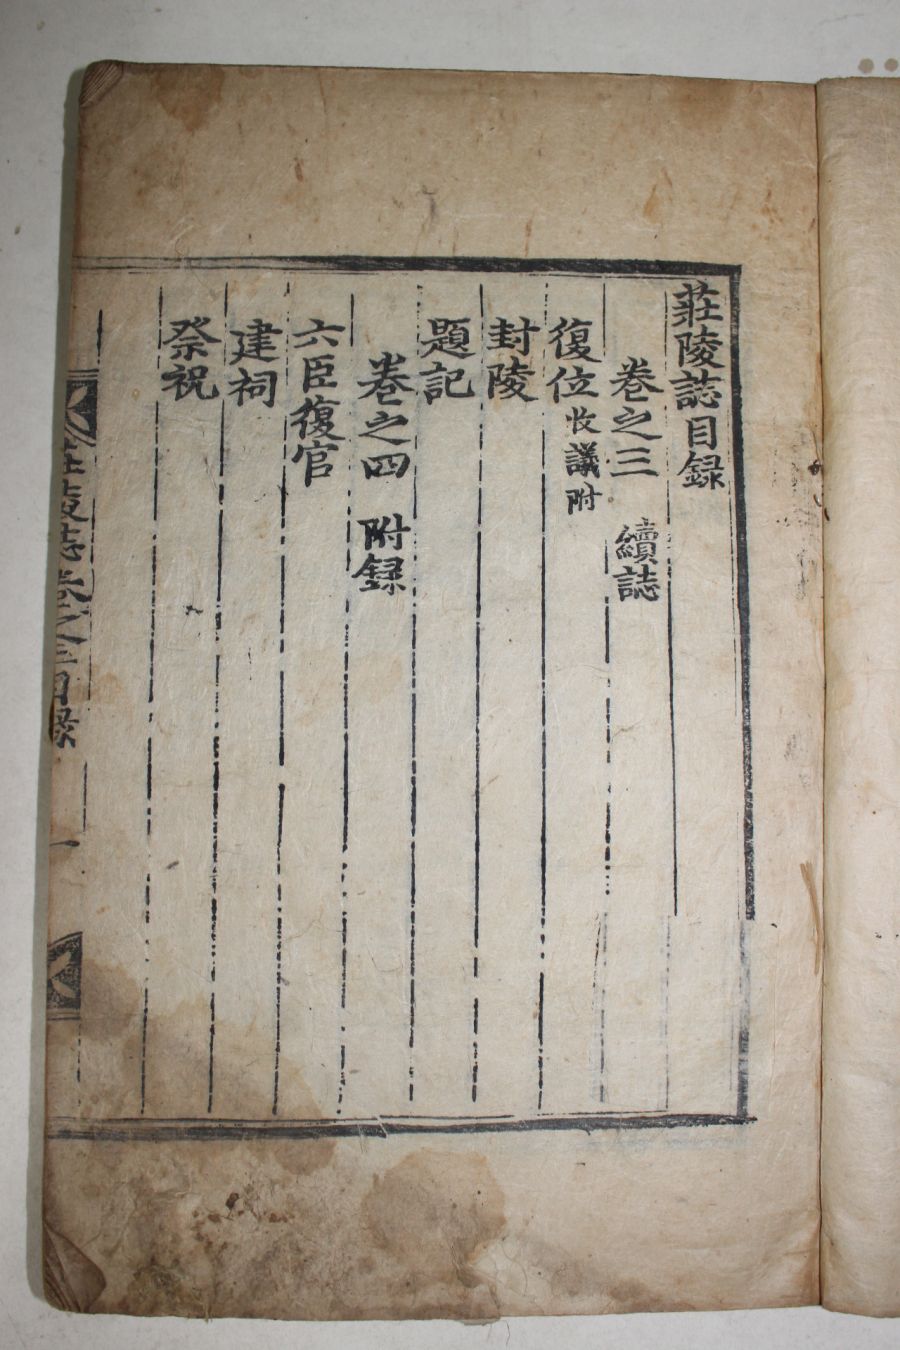 莊陵誌目録
卷之三 續誌
復位收議附
封陵
題記
卷之四 附録
六臣復官
建祠
祭祝
莊陵誌卷之三目録 一